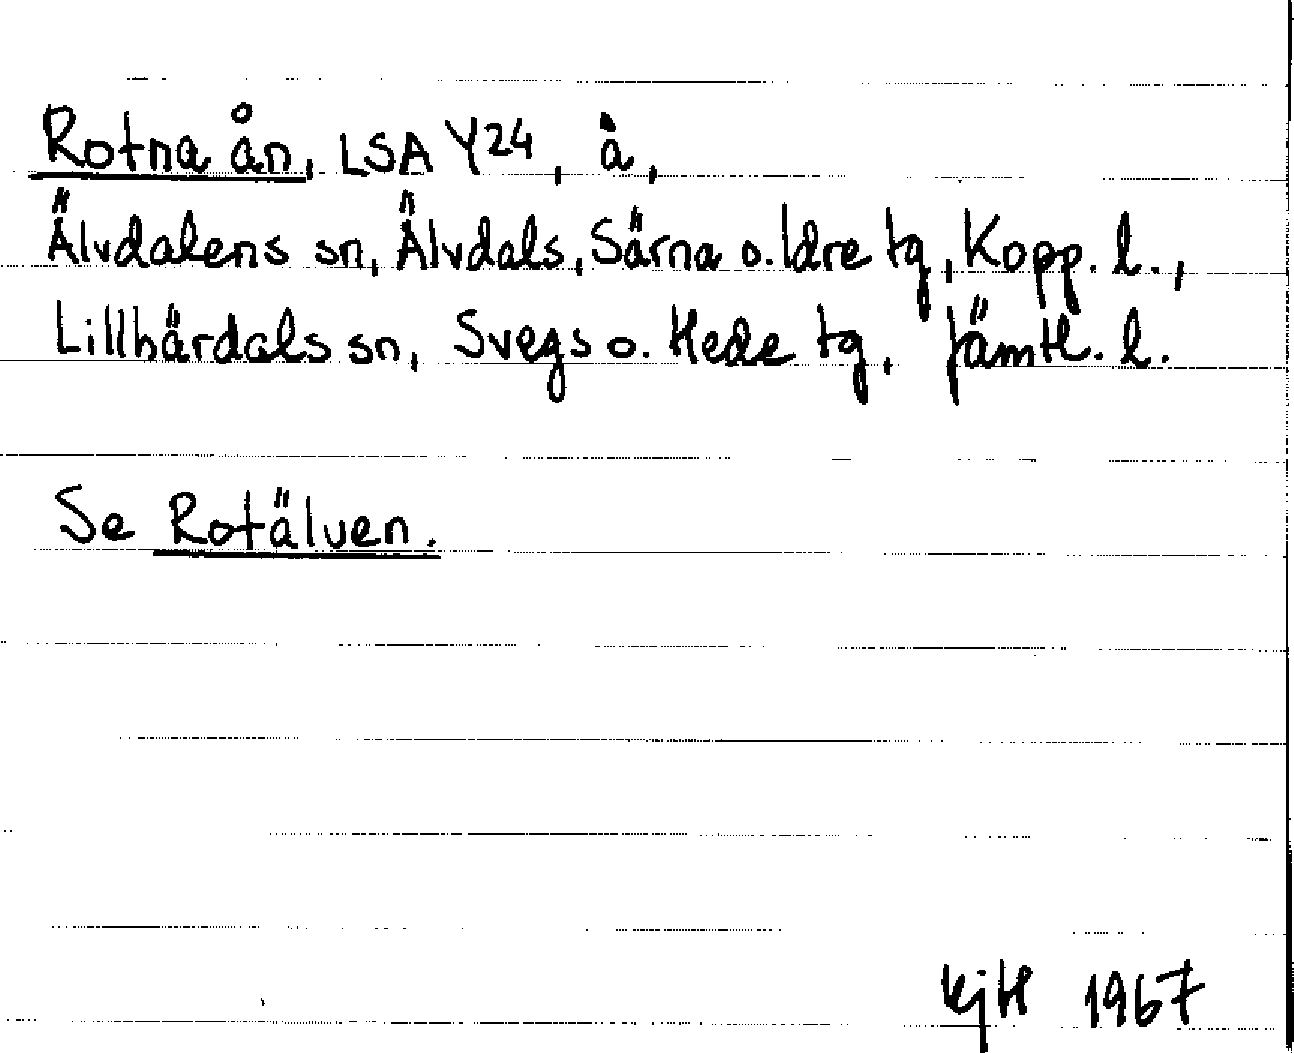 Rotna ån, LSA Y24, å,
Älvdalens sn, Älvdals, Särna o. Idre tg, Kopp. l.,
Lillhärdals sn, Svegs o. Hede tg, Jämtl. l.
Se Rotälven.
KjH 1967